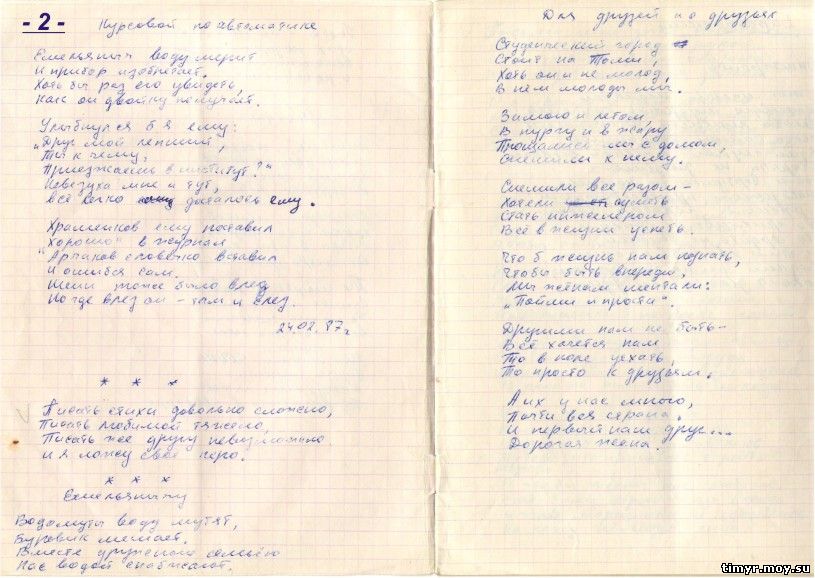 - 2 -
Курсовой по автоматике
Емельяныч воду мерит
И прибор изобретает.
Хоть бы раз его увидеть,
Как он двойку получает.
Улыбнулся б я ему:
„Друг мой лепший,
Ты к чему,
Приезжаешь в институт?"
Невезуха мне и тут,
всё легко досталось ему.
Храменков ему поставил
"Хорошо" в журнал
Арпаков словечко вставил
И ошибся сам.
Шеин тоже было влез
Но где влез он – там и слез.
24.02.87г
* * *
Писать стихи довольно сложно,
Писать любимой тяжело,
Писать же другу невозможно
И я ложу своё перо.
* * *
Емельянычу
Водомуты воду мутят,
Буровик мешает.
Вместе дружною семьёю
Нас водой снабжают.
Для друзей и о друзьях
Студенческий город
Стоит на Томи,
Хоть он и не молод,
В нём молоды мы.
Зимою и летом,
В пургу и в жару
Прощались мы с домом,
Спешили к нему.
Спешили все разом –
Хотели суметь
Стать инженером
Всё в жизни успеть.
Что б жизнь нам познать,
Чтобы быть впереди,
Мы жёнам шептали:
„Пойми и прости".
Другими нам не быть –
Всё хочется нам
То в поле уехать,
То просто к друзьям.
А их у нас много,
Почти вся страна.
И первый наш друг...
Дорогая жена.
timyr.moy.su